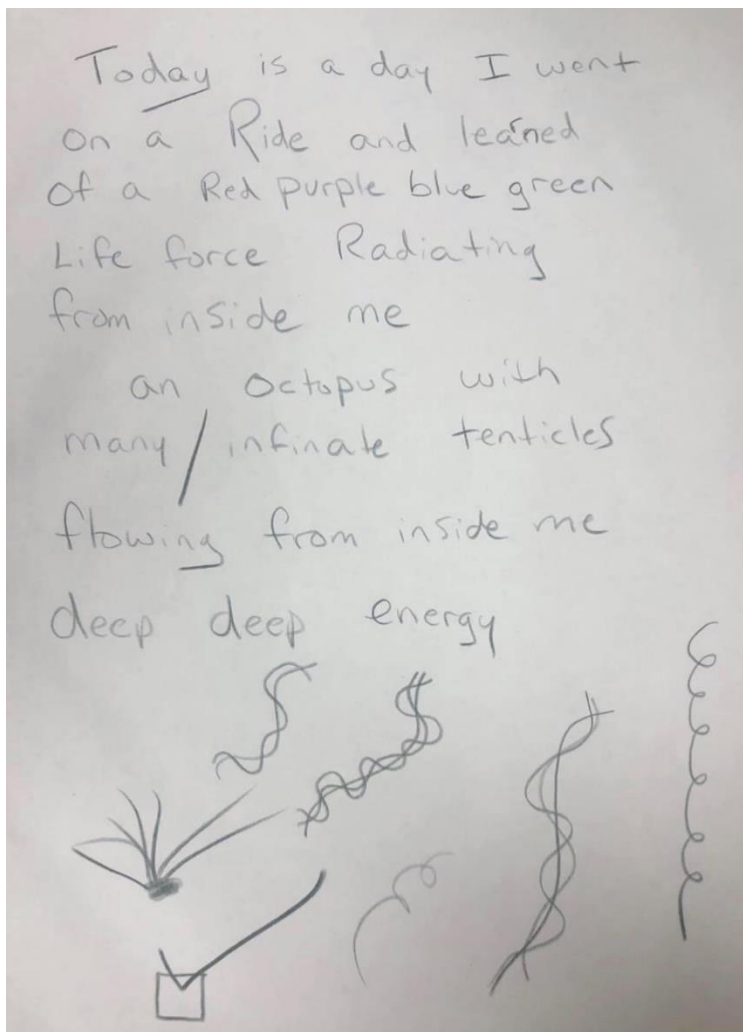 Today is a day I went
on a Ride and learned
of a Red purple blue green
Life force Radiating
from inside me
an octopus with
many / infinate tenticles
flowing from inside me
deep deep energy